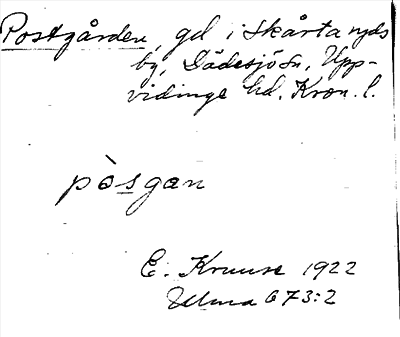 Postgården, gd i Skårtaryds
by, Dädesjö sn, Upp-
vidinge hd. Kron. l.
pòsgan
E. Kruuse 1922
Ulma 673:2